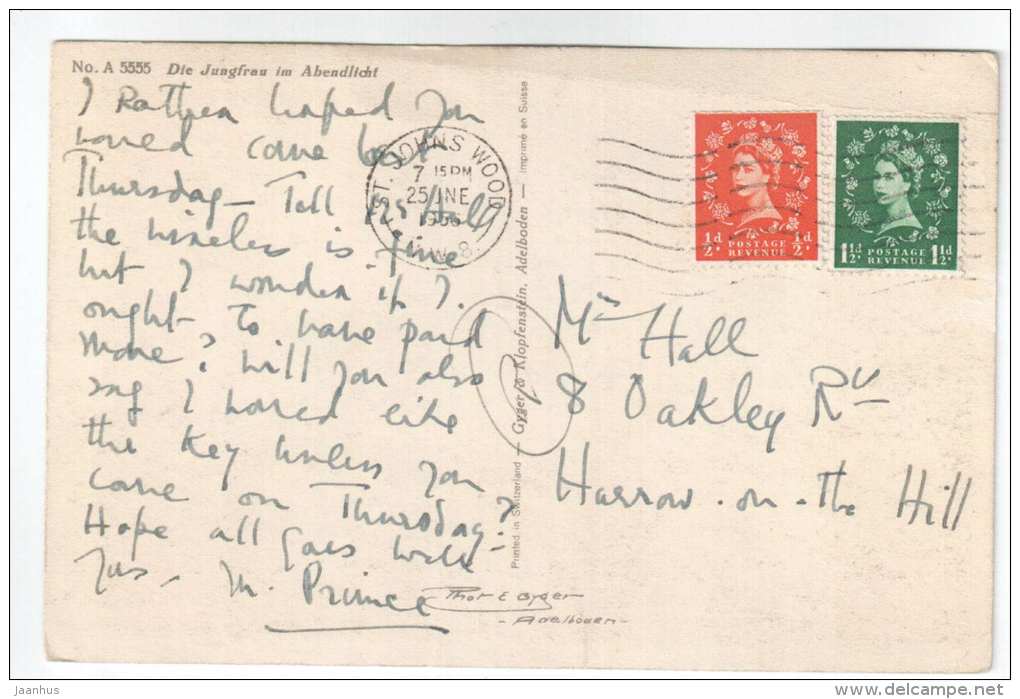 No. A 5555 Die Jungfrau im Abendlicht
I Rather hoped you
would come last
Thursday - Tell
the wireless is fine
but I wonder if I
ought to have paid
more? Will you also
say I would like
the key unless you
come on Thursday?
Hope all goes well
Yrs, M. Prince
ST. JOHNS WOOD
7 15 PM
25 JNE
1956
N.W.8.
Printed in Switzerland — Gyger & Klopfenstein, Adelboden — Imprimé en Suisse
½d ½d
POSTAGE
REVENUE
1½d 1½d
POSTAGE
REVENUE
Mrs Hall
8 Oakley Rd
Harrow-on-the Hill
Phot E Gyger
- Adelboden -
jaanhus
www.delcampe.net